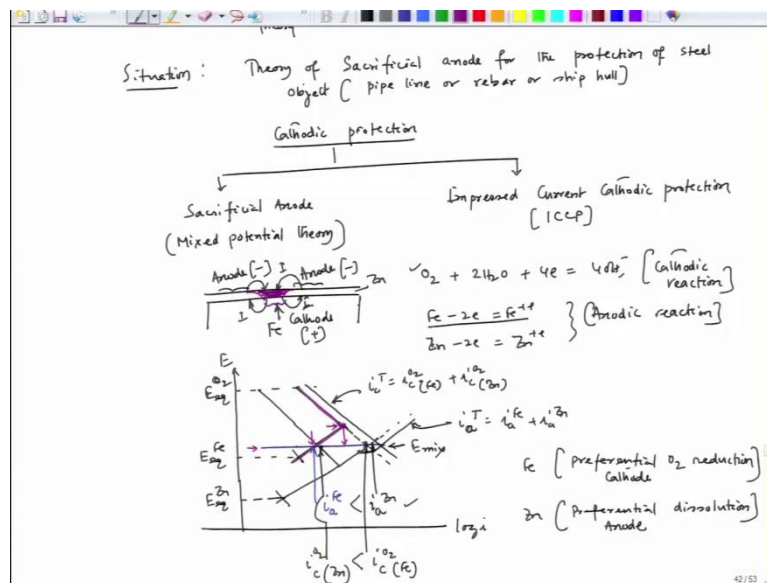 Theory
Situation : Theory of Sacrificial anode for the protection of steel
object [ pipe line or rebar or ship hull]
Cathodic protection
Sacrificial Anode
(Mixed potential theory)
Impressed Current Cathodic protection
[ICCP]
Anode (-) I Anode (-)
Zn
I Fe Cathode I
(+)
O2 + 2H2O + 4e = 4OH- [Cathodic
reaction]
Fe - 2e = Fe+2
Zn - 2e = Zn+2 } [Anodic reaction]
E
Eeq O2
ic T = ic O2 (Fe) + ic O2 (Zn)
ia T = ia Fe + ia Zn
Eeq Fe
Emix
Eeq Zn
Fe [Preferential O2 reduction]
Cathode
Zn [Preferential dissolution]
Anode
ia Fe < ia Zn ✓
log i
ic O2 (Zn) < ic O2 (Fe)
42/53